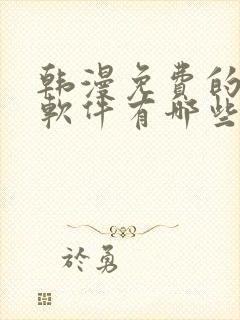 韩漫免費的
軟件有哪些
於勇